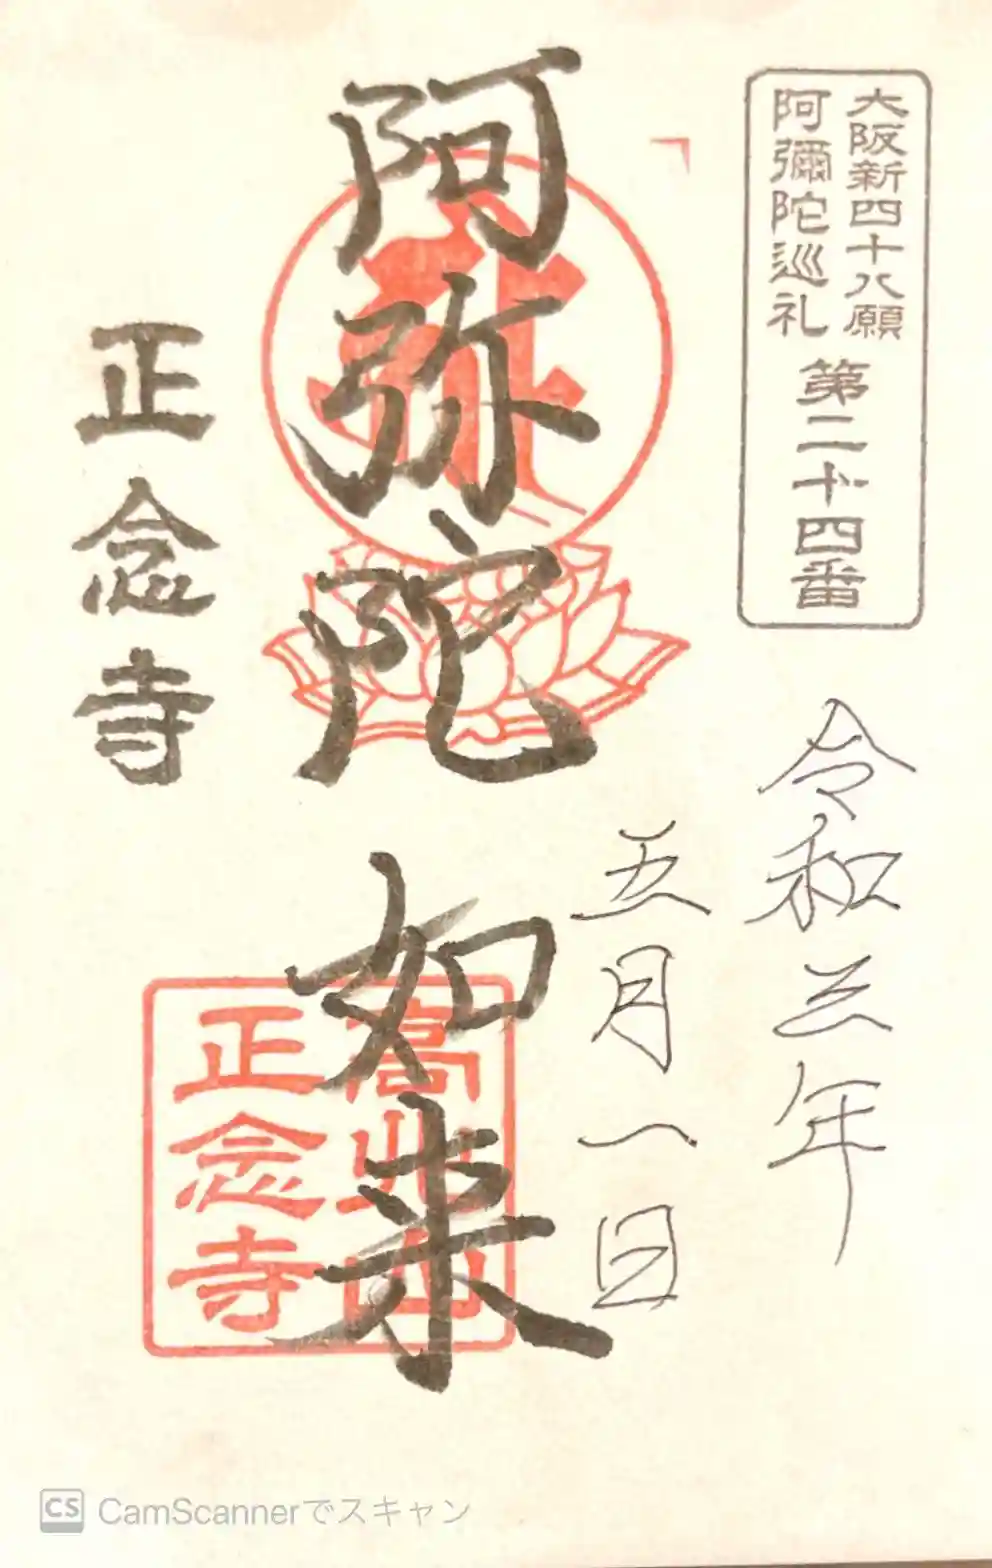 大阪新四十八願
阿彌陀巡礼
第二十四番
令和三年
五月一日
阿弥陀如来
正念寺
正念寺
CS CamScannerでスキャン